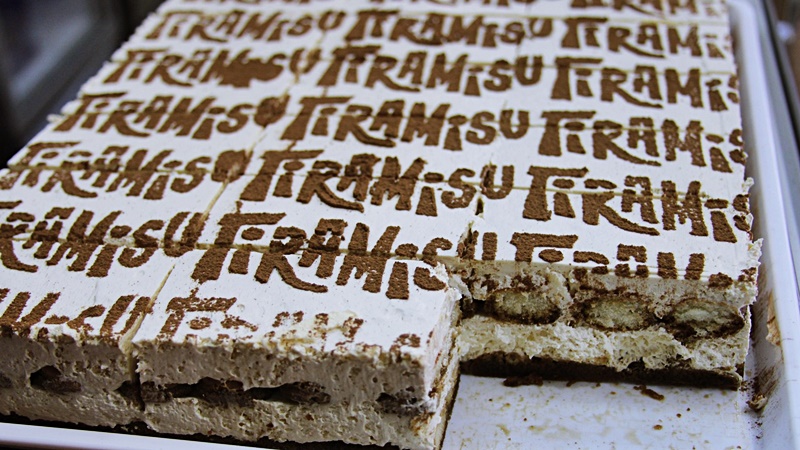 TiRAMiSU TiRAMiSU TiRAMi
TiRAMiSU TiRAMiSU TiRAMiS
TiRAMiSU TiRAMiSU TiRAMiS
TiRAMiSU TiRAMiSU TiRAMiS
TiRAMiSU TiRAMiSU TiRAMiS
TiRAMiSU TiRAMiS TiRAMi